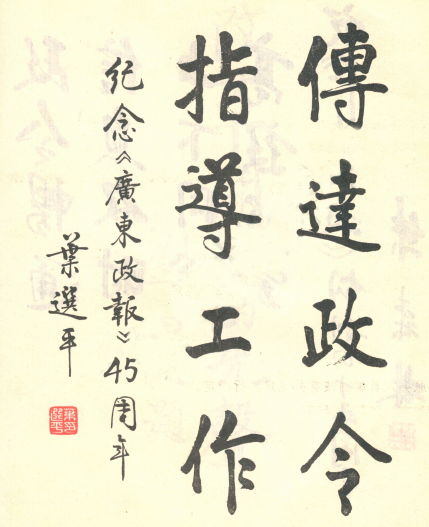 傳達政令
指導工作
紀念《廣東政報》45周年
葉選平